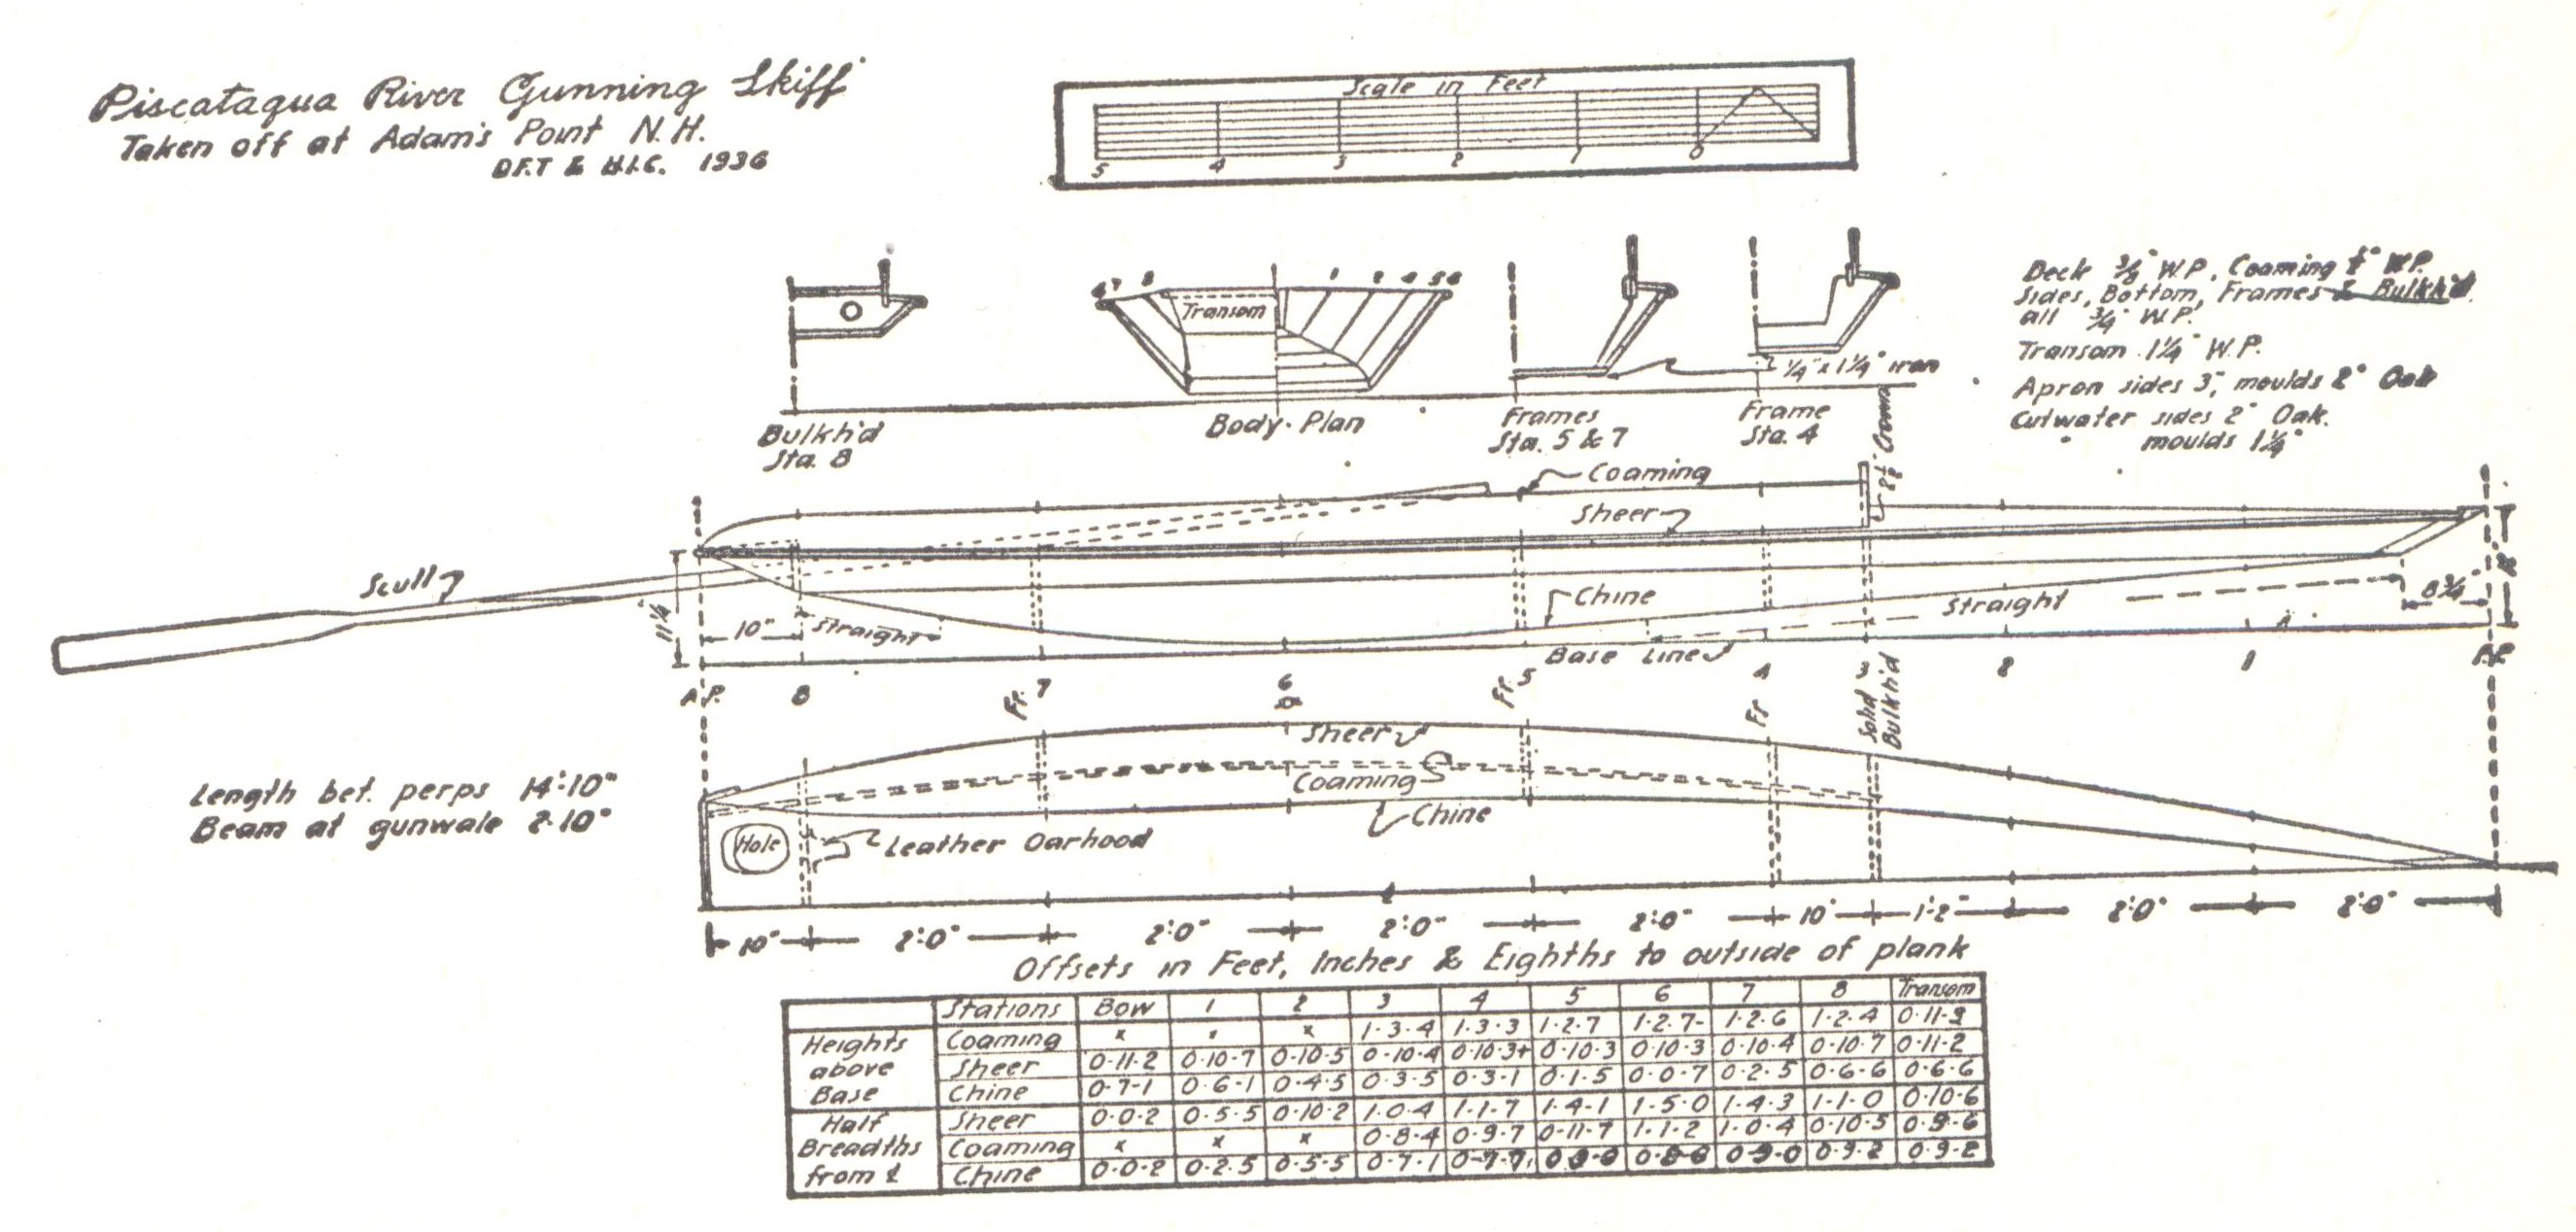 Piscataqua River Gunning Skiff
Taken off at Adam's Point N.H.
D.F.T & H.I.C. 1936
Scale in Feet
5 4 3 2 1 0
Deck 3/8" W.P. Coaming W.P.
Sides, Bottom, Frames & Bulkh'd
all 3/4" W.P.
Transom 1 1/4" W.P.
Apron sides 3", moulds 2" Oak
Cutwater sides 2" Oak.
moulds 1 1/4"
Transom
1/4" x 1 1/4" iron
Bulkh'd
Sta. 8
Body Plan
Frames
Sta. 5 & 7
Frame
Sta. 4
Crown
Coaming
Sheer
Scull
Chine
11 1/4
10"
Straight
Straight
8 3/4"
Base Line
A.P. 8 Fr. 7 6 Fr. 5 4 3 2 1 F.P.
Fr
Solid
Bulkh'd
Sheer
Coaming
Chine
Length bet. perps 14'-10"
Beam at gunwale 2-10"
Hole
Leather Oarhood
10" 2'-0" 2'-0" 2'-0" 2'-0" 10" 1'-2" 2'-0" 2'-0"
Offsets in Feet, Inches & Eighths to outside of plank
Stations Bow 1 2 3 4 5 6 7 8 Transom
Heights above Base
Coaming x x x 1-3-4 1-3-3 1-2-7 1-2-7- 1-2-6 1-2-4
Sheer 0-11-2 0-10-7 0-10-5 0-10-4 0-10-3+ 0-10-3 0-10-3 0-10-4 0-10-7 0-11-2
Chine 0-7-1 0-6-1 0-4-5 0-3-5 0-3-1 0-1-5 0-0-7 0-2-5 0-6-6 0-6-6
Half Breadths from ℄
Sheer 0-0-2 0-5-5 0-10-2 1-0-4 1-1-7 1-4-1 1-5-0 1-4-3 1-1-0 0-10-6
Coaming x x x 0-8-4 0-9-7 0-11-7 1-1-2 1-0-4 0-10-5
Chine 0-0-2 0-2-5 0-5-5 0-7-1 0-7-7 0-9-0 0-9-2 0-9-2